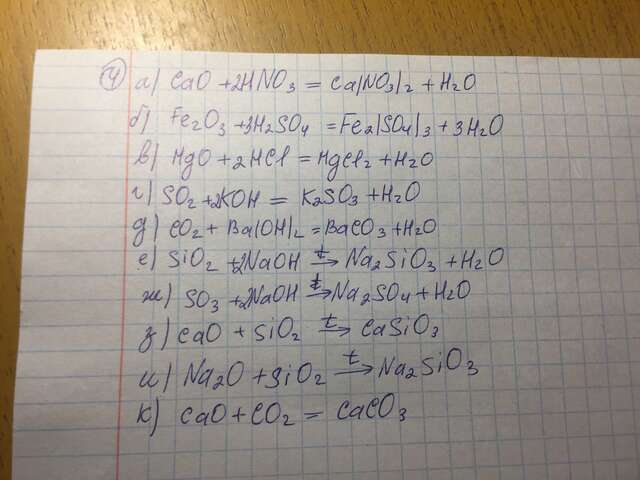 4) а) CaO + 2HNO₃ = Ca(NO₃)₂ + H₂O
б) Fe₂O₃ + 3H₂SO₄ = Fe₂(SO₄)₃ + 3H₂O
в) HgO + 2HCl = HgCl₂ + H₂O
г) SO₂ + 2KOH = K₂SO₃ + H₂O
д) CO₂ + Ba(OH)₂ = BaCO₃ + H₂O
е) SiO₂ + 2NaOH t→ Na₂SiO₃ + H₂O
ж) SO₃ + 2NaOH t→ Na₂SO₄ + H₂O
з) CaO + SiO₂ t→ CaSiO₃
и) Na₂O + SiO₂ t→ Na₂SiO₃
к) CaO + CO₂ = CaCO₃